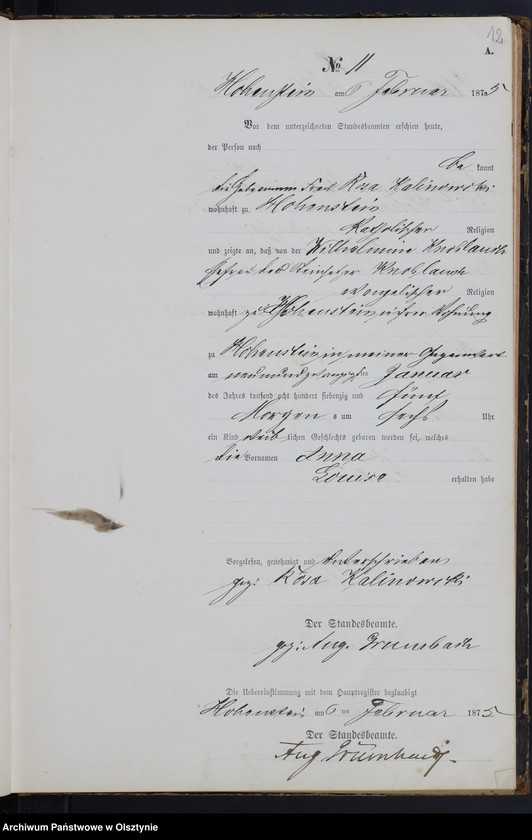 12
A.
№ 11
Hohenstein am 6 Februar 1875
Vor dem unterzeichneten Standesbeamten erschien heute,
der Person nach
be kannt
die Hebamme Frau Rosa Kalinowski
wohnhaft zu Hohenstein
katholischer Religion
und zeigte an, daß von der Wilhelmine Knoblauch
Knoblauch
evangelischer Religion
wohnhaft zu Hohenstein in ihrer Wohnung
zu Hohenstein in meiner Gegenwart
am neunundzwanzigsten Januar
des Jahres tausend acht hundert siebenzig und fünf
Morgen s um sechs Uhr
ein Kind weib lichen Geschlechts geboren worden sei, welches
die Vornamen Anna
Louise erhalten habe
Vorgelesen, genehmigt und unterschrieben
gez: Rosa Kalinowski
Der Standesbeamte.
gez: Aug.
Die Uebereinstimmung mit dem Hauptregister beglaubigt
Hohenstein am 6 ten Februar 1875
Der Standesbeamte.
Aug
Archiwum Państwowe w Olsztynie